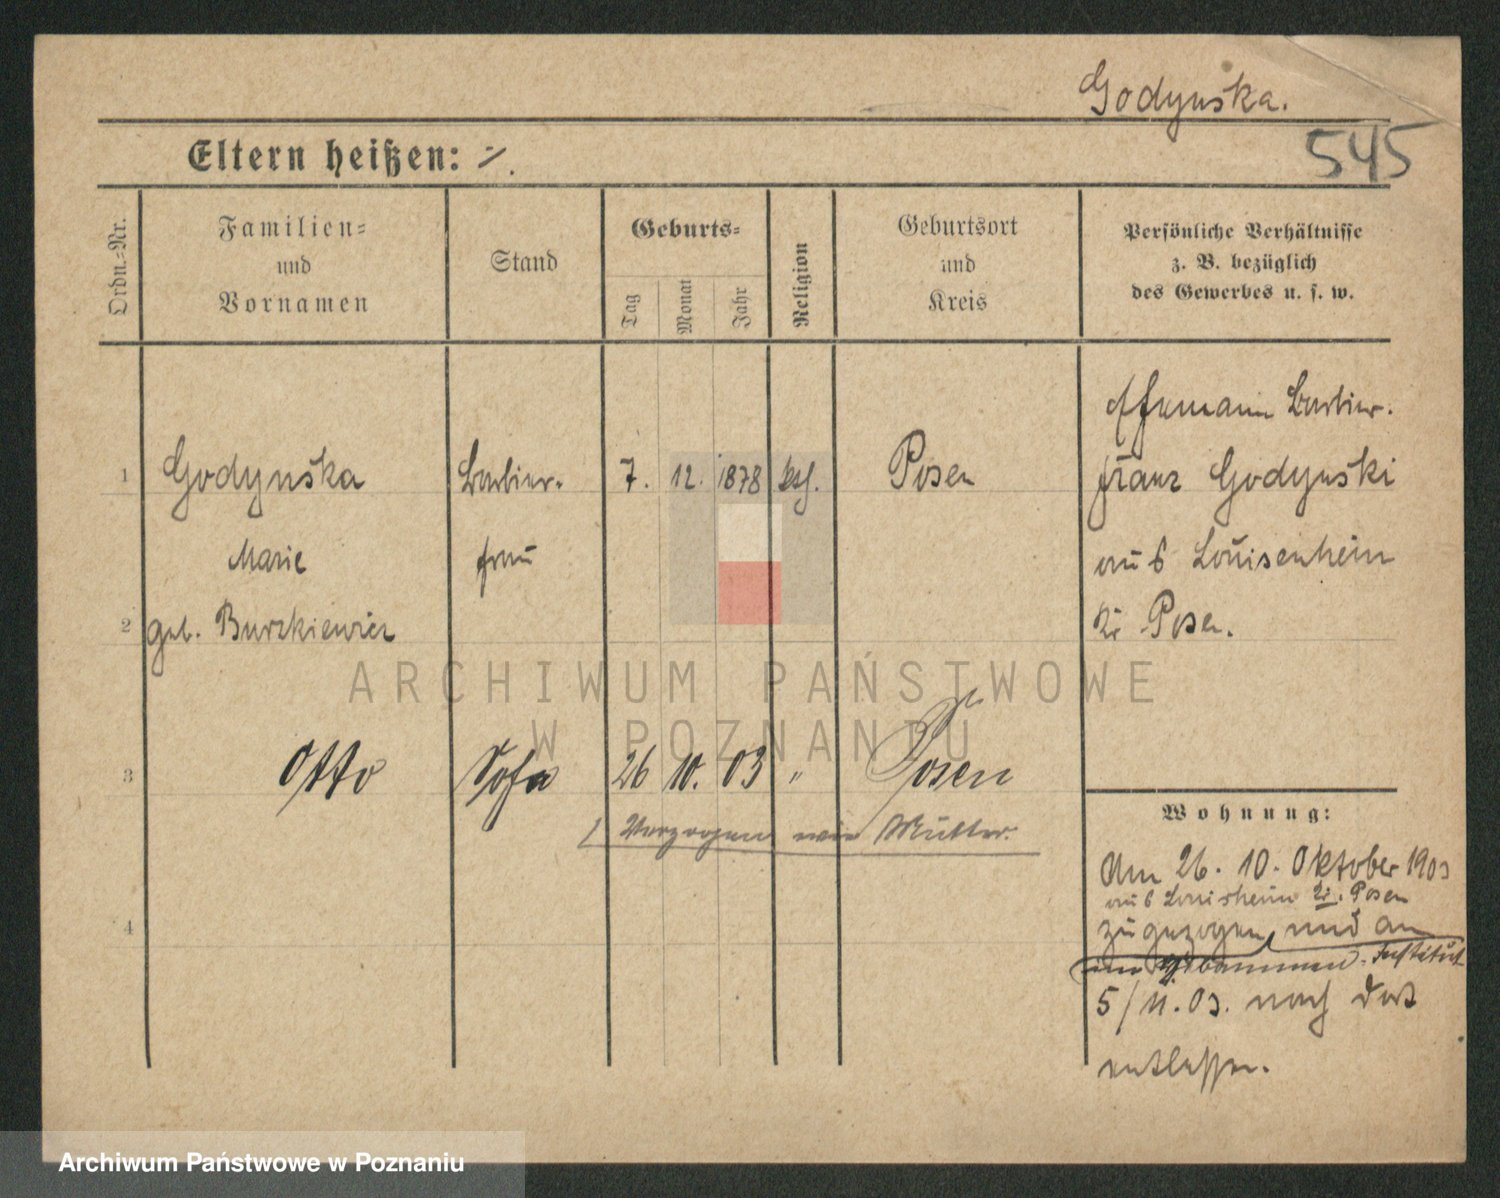 Godynska.
545
Eltern heißen: ·/.
Ordn.=Nr.
Familien=
und
Vornamen
Stand
Geburts=
Tag
Monat
Jahr
Religion
Geburtsort
und
Kreis
Persönliche Verhältnisse
z. B. bezüglich
des Gewerbes u. s. w.
1
Godynska
Barbier-
7. 12. 1878
kath.
Posen
Marie
frau
2
geb. Burzkiewicz
Ehemann Barbier
Franz Godynski
aus Louisenhein
Kr Posen.
3
Otto
Sohn
26 10. 03 "
Posen
Verzogen wie Mutter.
4
Wohnung:
Am 26. 10. Oktober 1903
aus Louisheim Kr. Posen
zugezogen und am
im Hebammen-Institut
5/11. 03. nach dort
entlassen.
ARCHIWUM PAŃSTWOWE
W POZNANIU
Archiwum Państwowe w Poznaniu